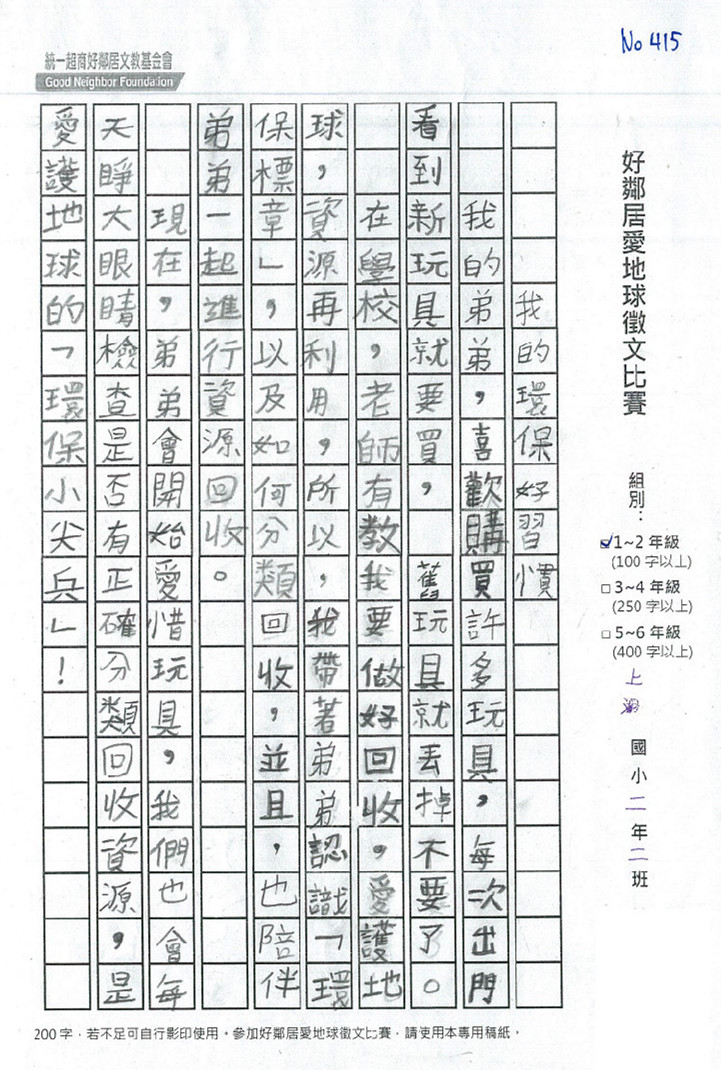 統一超商好鄰居文教基金會
Good Neighbor Foundation
No 415
好鄰居愛地球徵文比賽
組別：
☑1~2 年級
(100 字以上)
□3~4 年級
(250 字以上)
□5~6 年級
(400 字以上)
上 國小 二 年 二 班
我的環保好習慣
我的弟弟，喜歡購買許多玩具，每次出門
看到新玩具就要買，舊玩具就丟掉不要了。
在學校，老師有教我要做好回收，愛護地
球，資源再利用，所以，我要帶著弟弟認識「環
保標章」，以及如何分類回收，並且，也陪伴
弟弟一起進行資源回收。
現在，弟弟會開始愛惜玩具，我們也會每
天睜大眼睛檢查是否有正確分類回收資源，是
愛護地球的「環保小尖兵」！
200 字，若不足可自行影印使用。參加好鄰居愛地球徵文比賽，請使用本專用稿紙，